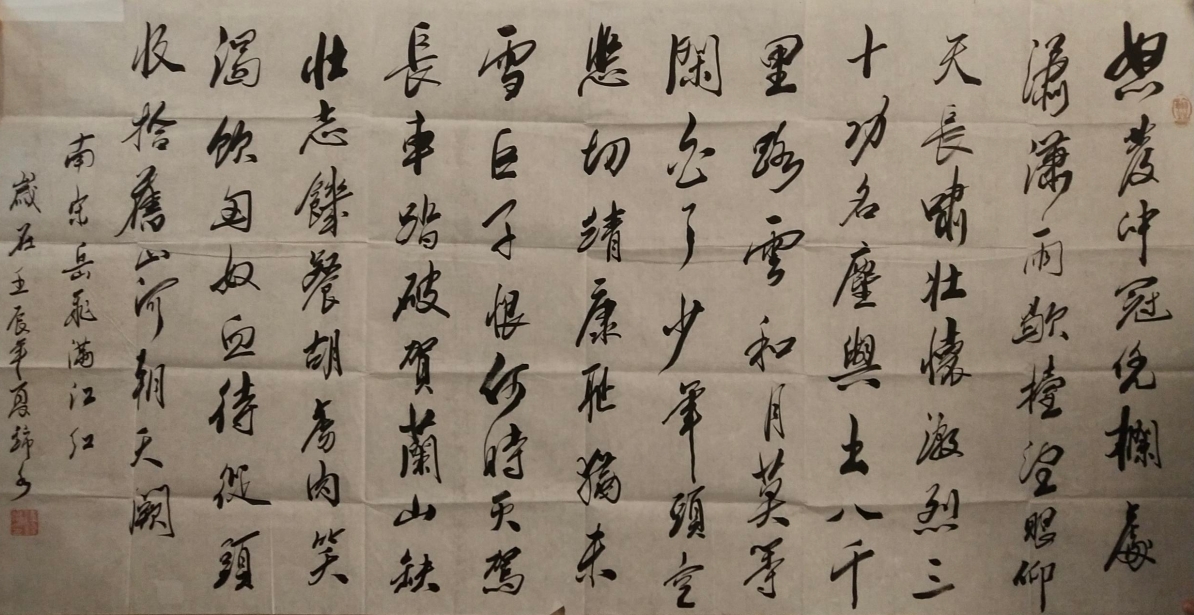 怒發冲冠凭欄處
瀟瀟雨歇擡望眼仰
天長嘯壯懷激烈三
十功名塵與土八千
里路雲和月莫等
閑白了少年頭空
悲切靖康耻猶未
雪臣子恨何時灭駕
長車踏破賀蘭山缺
壯志饑餐胡虜肉笑
渴飲匈奴血待從頭
收拾舊山河朝天闕
南宋岳飛滿江红
歲在壬辰年夏